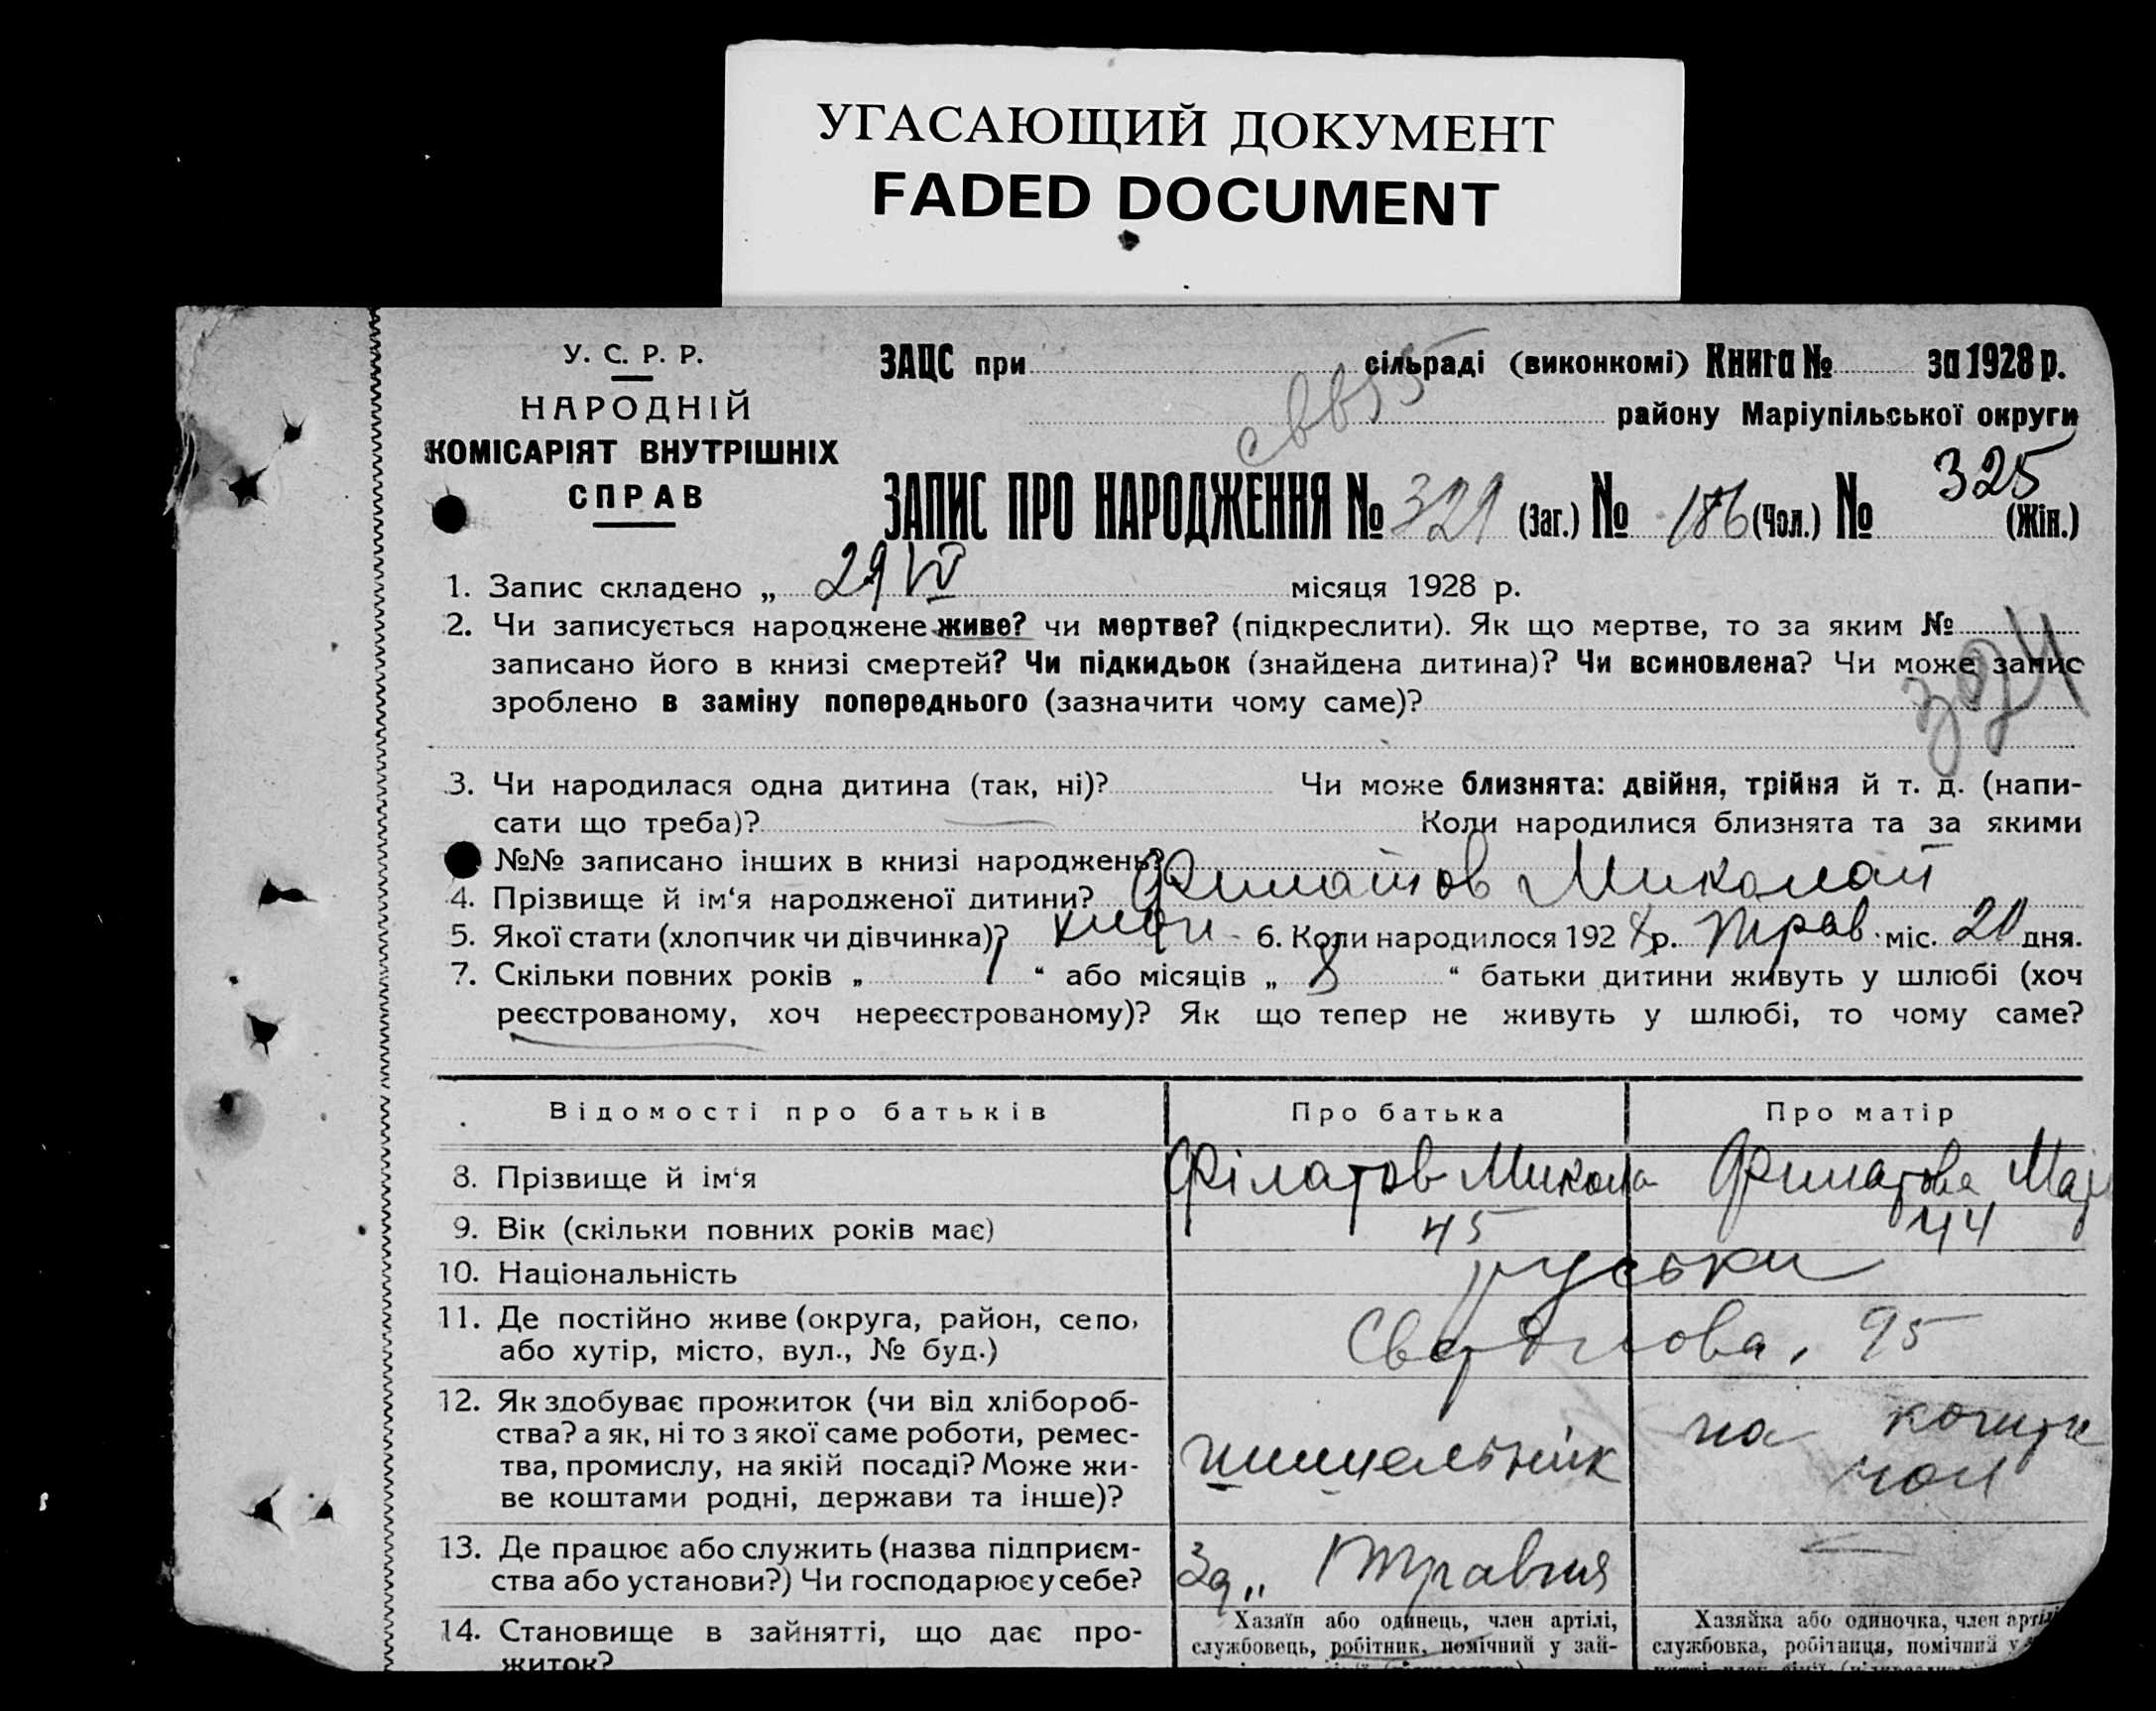 УГАСАЮЩИЙ ДОКУМЕНТ
FADED DOCUMENT
У. С. Р. Р.
НАРОДНІЙ
КОМІСАРІЯТ ВНУТРІШНІХ
СПРАВ
ЗАЦС при сільраді (виконкомі) Книга № за 1928 р.
району Маріупільської округи
325
ЗАПИС ПРО НАРОДЖЕННЯ № 321 (Заг.) № 186 (Чол.) № (Жін.)
1. Запис складено „ 29 VI місяця 1928 р.
2. Чи записується народжене живе? чи мертве? (підкреслити). Як що мертве, то за яким №
записано його в книзі смертей? Чи підкидьок (знайдена дитина)? Чи всиновлена? Чи може запис
зроблено в заміну попереднього (зазначити чому саме)?
324
3. Чи народилася одна дитина (так, ні)? Чи може близнята: двійня, трійня й т. д. (напи-
сати що треба)? Коли народилися близнята та за якими
№№ записано інших в книзі народжень?
4. Прізвище й ім‘я народженої дитини? Филатов Миколай
5. Якої стати (хлопчик чи дівчинка)? 6. Коли народилося 1928 р. Трав. міс. 20 дня.
7. Скільки повних років „ “ або місяців „ 8 “ батьки дитини живуть у шлюбі (хоч
реєстрованому, хоч нереєстрованому)? Як що тепер не живуть у шлюбі, то чому саме?
Відомості про батьків Про батька Про матір
8. Прізвище й ім‘я Філатов Микола Филатова
9. Вік (скільки повних років має) 45 44
10. Національність руськи
11. Де постійно живе (округа, район, село,
або хутір, місто, вул., № буд.) Свердлова, 95
12. Як здобуває прожиток (чи від хлібороб-
ства? а як, ні то з якої саме роботи, ремес-
тва, промислу, на якій посаді? Може жи-
ве коштами родні, держави та інше)? на
чол
13. Де працює або служить (назва підприєм-
ства або установи?) Чи господарює у себе? Зд „ 1 Травня —
14. Становище в зайнятті, що дає про-
житок?
Хазяїн або одинець, член артілі,
службовець, робітник, помічний у зай-
Хазяйка або одиночка, член артілі
службовка, робітниця, помічний у